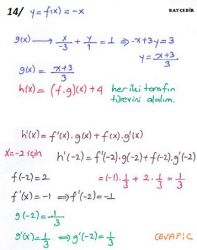 14/ y=f(x)=-x
BAYÇEBİR
g(x) → x/-3 + y/1 = 1 ⇒ -x+3y=3
y = x+3/3
g(x) = x+3/3
h(x) = (f.g)(x)+4 her iki tarafın
türevini alalım.
h'(x) = f'(x).g(x)+f(x).g'(x)
x=-2 için h'(-2) = f'(-2).g(-2)+f(-2).g'(-2)
f(-2)=2 = (-1).1/3 + 2.1/3 = 1/3
f'(x)=-1 ⇒ f'(-2)=-1
g(-2)=1/3
g'(x)=1/3 ⇒ g'(-2)=1/3
CEVAP: C